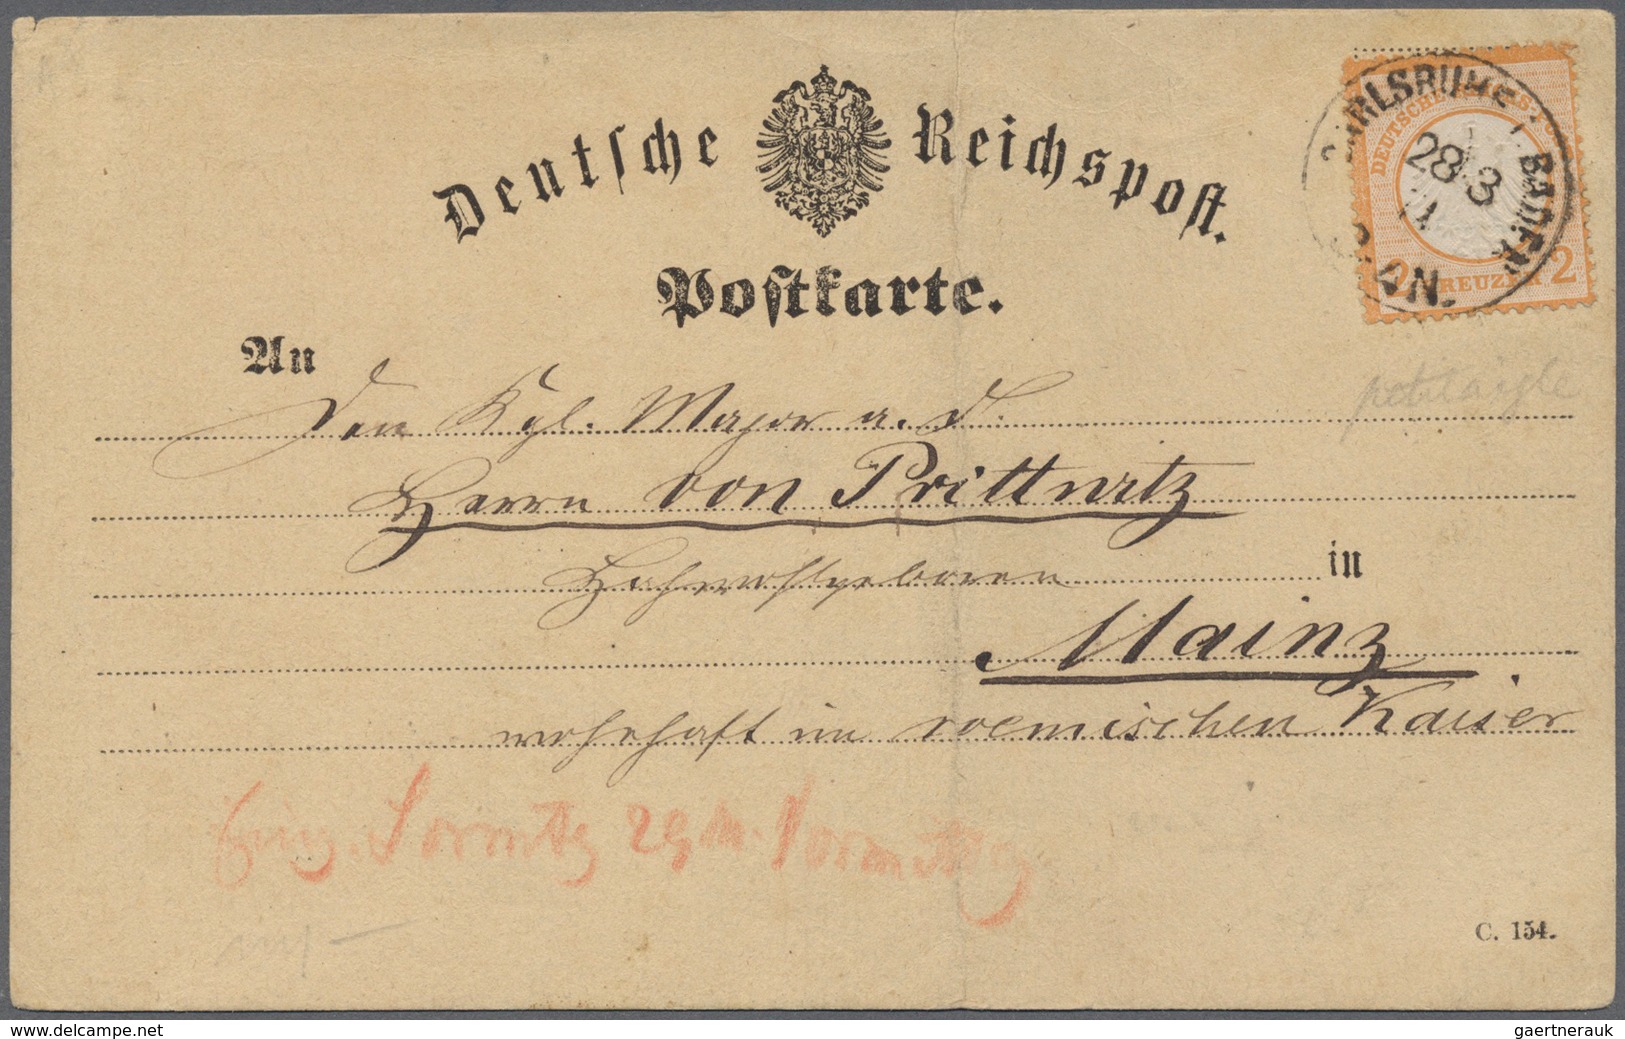 Deutſche Reichspoſt.
Poſtkarte.
DEUTSCHE REICHS-POST
2 KREUZER 2
KARLSRUHE I. BADEN
28 3
BAHN.
petit aigle
An
Den Kgl. Major a. D.
Herrn von Prittwitz
Hochwohlgeboren
in
Mainz
wohnhaft im roemischen Kaiser
29
C. 154.
www.delcampe.net
gaertnerauk